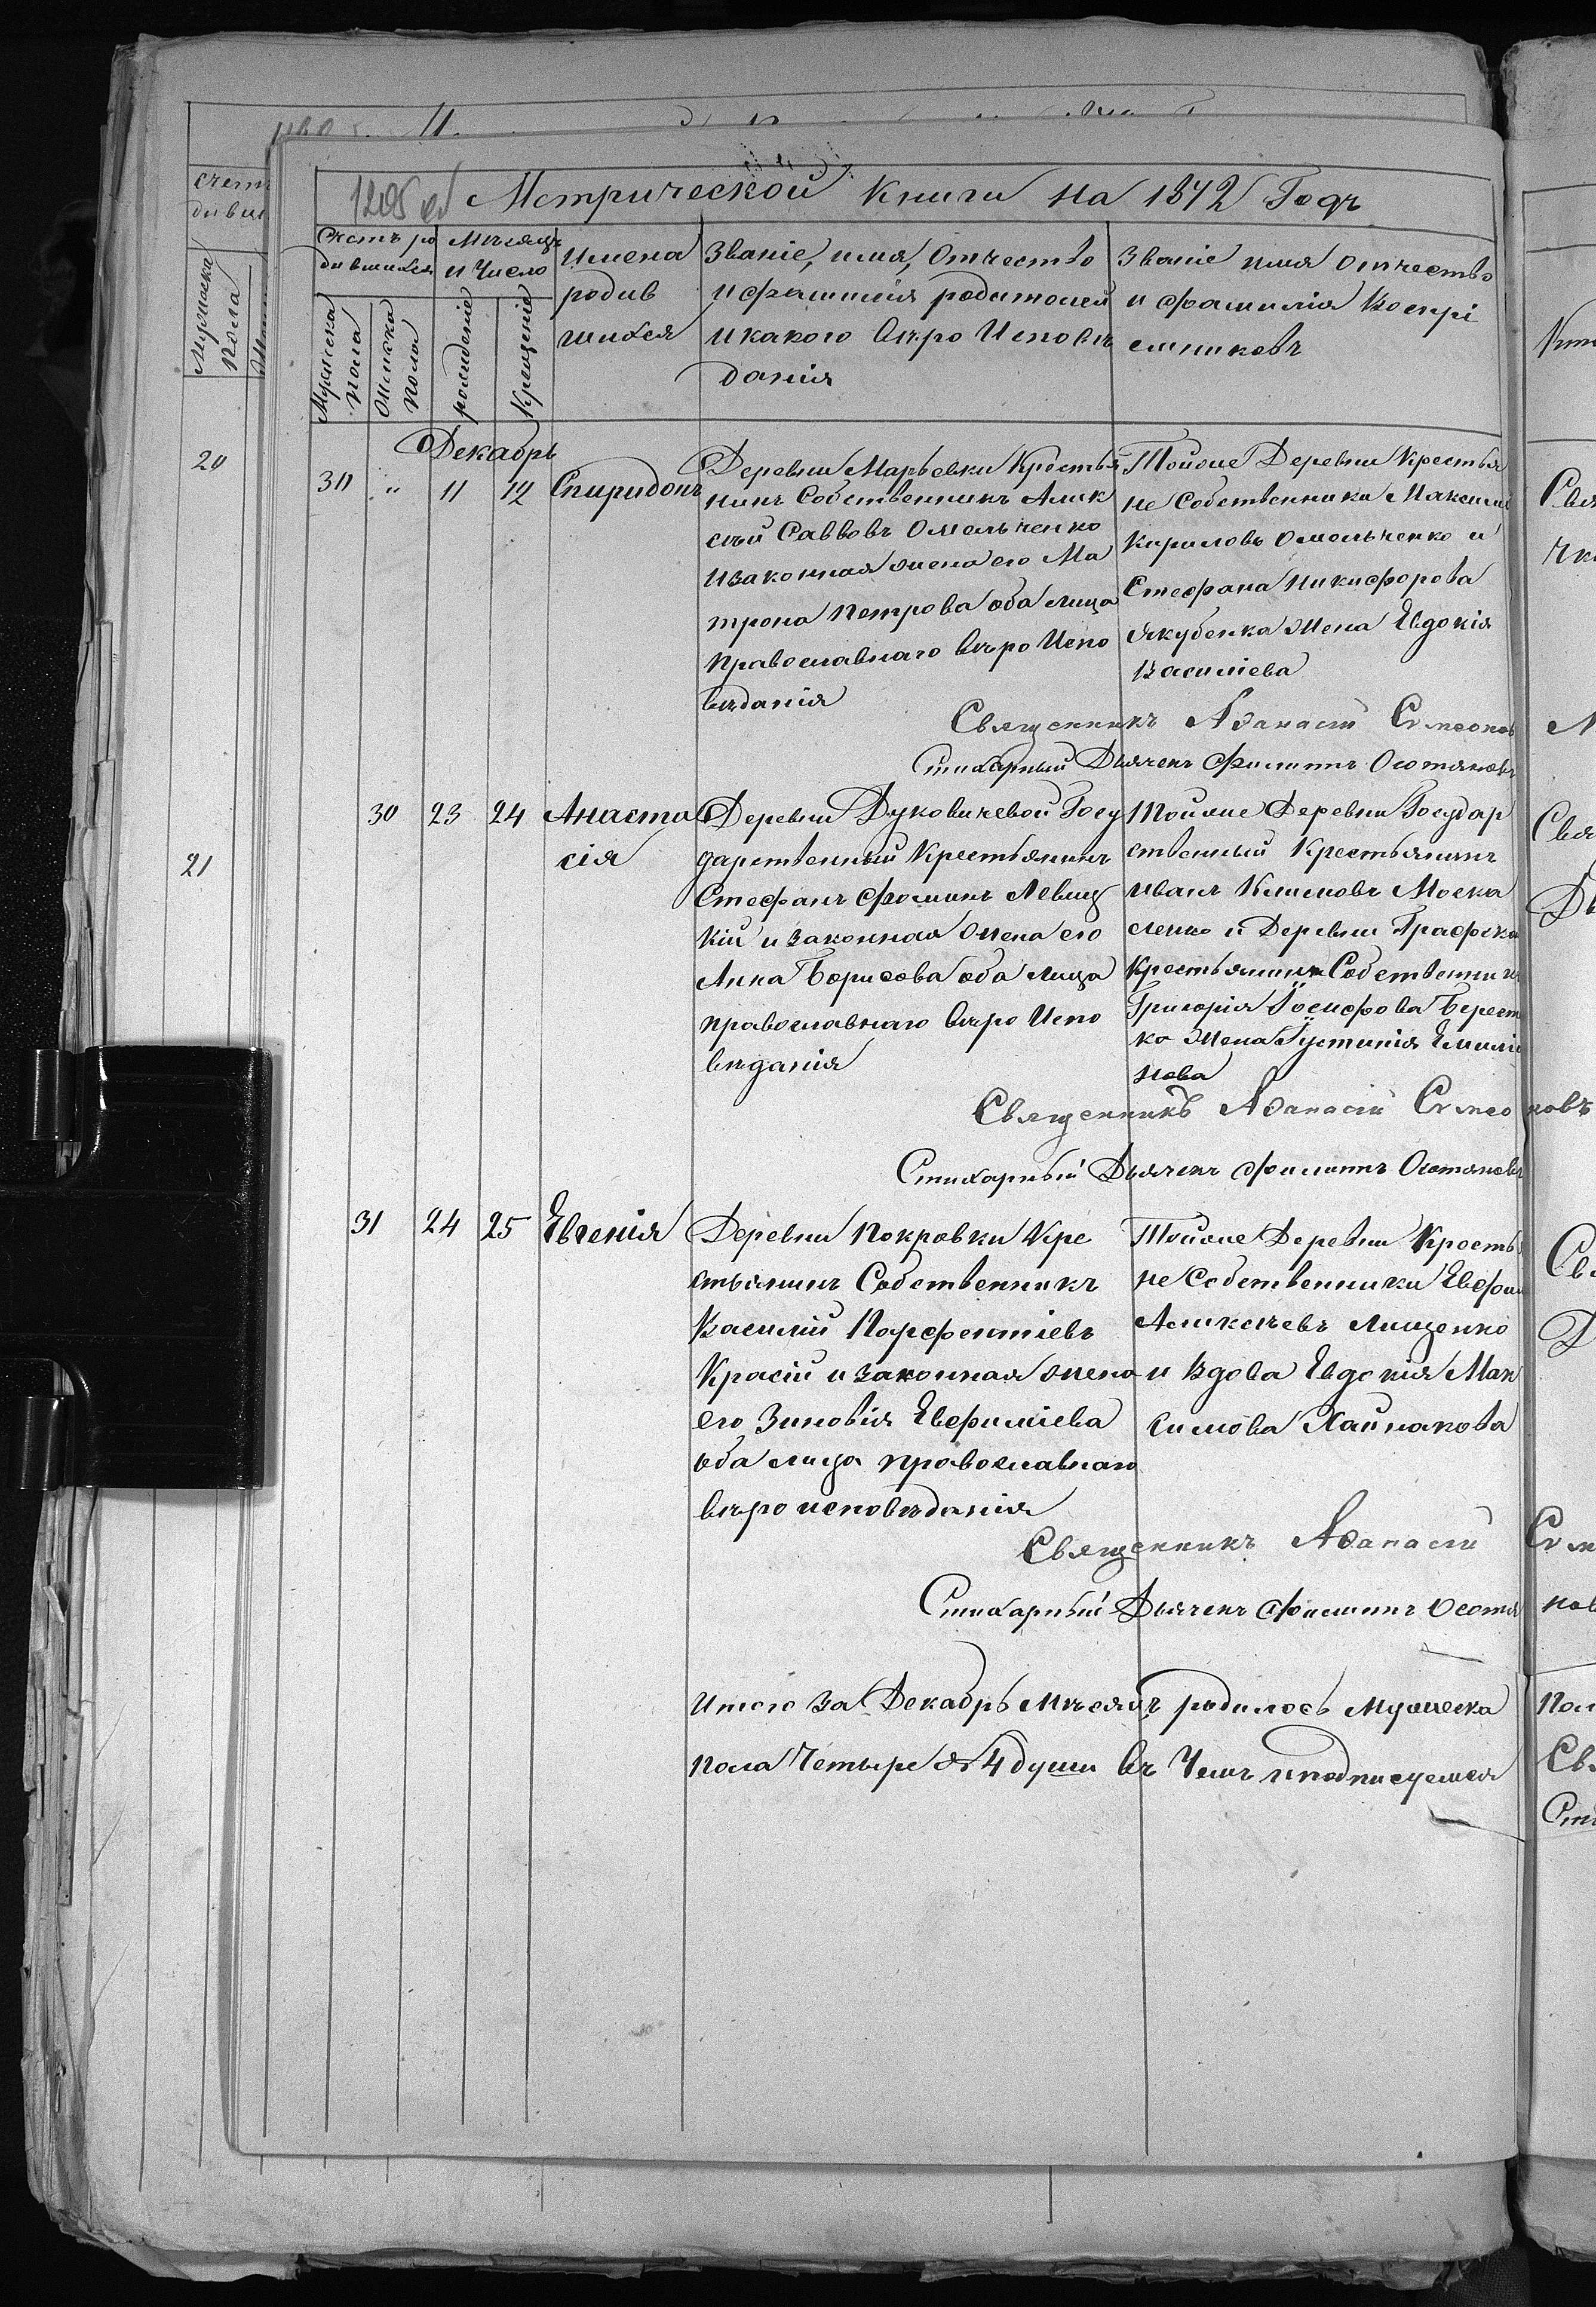 1205 об
Метрической Книги на 1872 Годъ
Счетъ ро
дившихся
Мѣсяцъ
и Число
Имена
родив
шихся
Званіе, имя, Отчество
и фамилія родителей
и какого вѣро Исповѣ
данія
Званіе имя отчество
и фамилія Воспрі
емниковъ
Мужеска
пола
Женска
пола
рожденіе
Крещеніе
Декабрь
30 " 11 12 Спиридонъ
Деревни Марьевки Крестья
нинъ Собственникъ Алик
сѣй Саввовъ Омельченко
и законная жена его Ма
трона Петрова оба лица
православнаго вѣро Испо
вѣданія
Тойже Деревни Крестья
не Собственники Максим
Кириловъ Омельченко и
Стефана Никифорова
Якубенка жена Евдокія
Василіева
Священникъ Аѳанасій Симеонов
Стихарный Дьячекъ Филиппъ
30 23 24 Анаста
сія
Деревни Духовичевой Госу
дарственный Крестьянинъ
Стефанъ Фоминъ Левиц
кій и законная жена его
Анна Борисова оба лица
православнаго вѣро Испо
вѣданія
Тойже Деревни Государ
ственный Крестьянинъ
Иванъ Климовъ Моска
ленко и Деревни Графска
Крестьянина Собственника
Григорія Іосифова Берест
ко жена Іустинія Емилія
нова
Священникъ Аѳанасій Симеоновъ
Стихарный Дьячекъ Филиппъ
31 24 25 Евгенія
Деревни Покровки Кре
стьянинъ Собственникъ
Василій Парфентіевъ
Красій и законная жена
его Зиновія Евфиміева
оба лица православнаго
вѣро исповѣданія
Тойже Деревни Крестья
не Собственники Евфим
Аликсѣевъ Лищенко
и Вдова Евдокія Мак
симова Хайнакова
Священникъ Аѳанасій Сим
Стихарный Дьячекъ Филиппъ
Итого за Декабрь мѣсяцъ родилось мужеска
пола Четыре 4 души въ Чемъ и подписуемся
20
21
Мужеска
пола